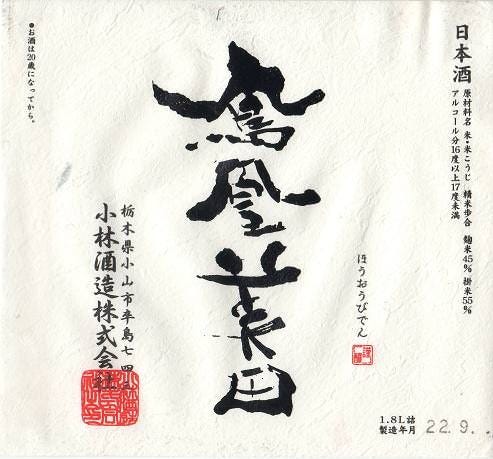 日本酒
原材料名 米・米こうじ 精米歩合 麹米45% 掛米55%
アルコール分16度以上17度未満
ほうおうびでん
鳳凰美田
栃木県小山市卒島七四三
小林酒造株式会社
●お酒は20歳になってから。
1.8L詰
製造年月 22.9.